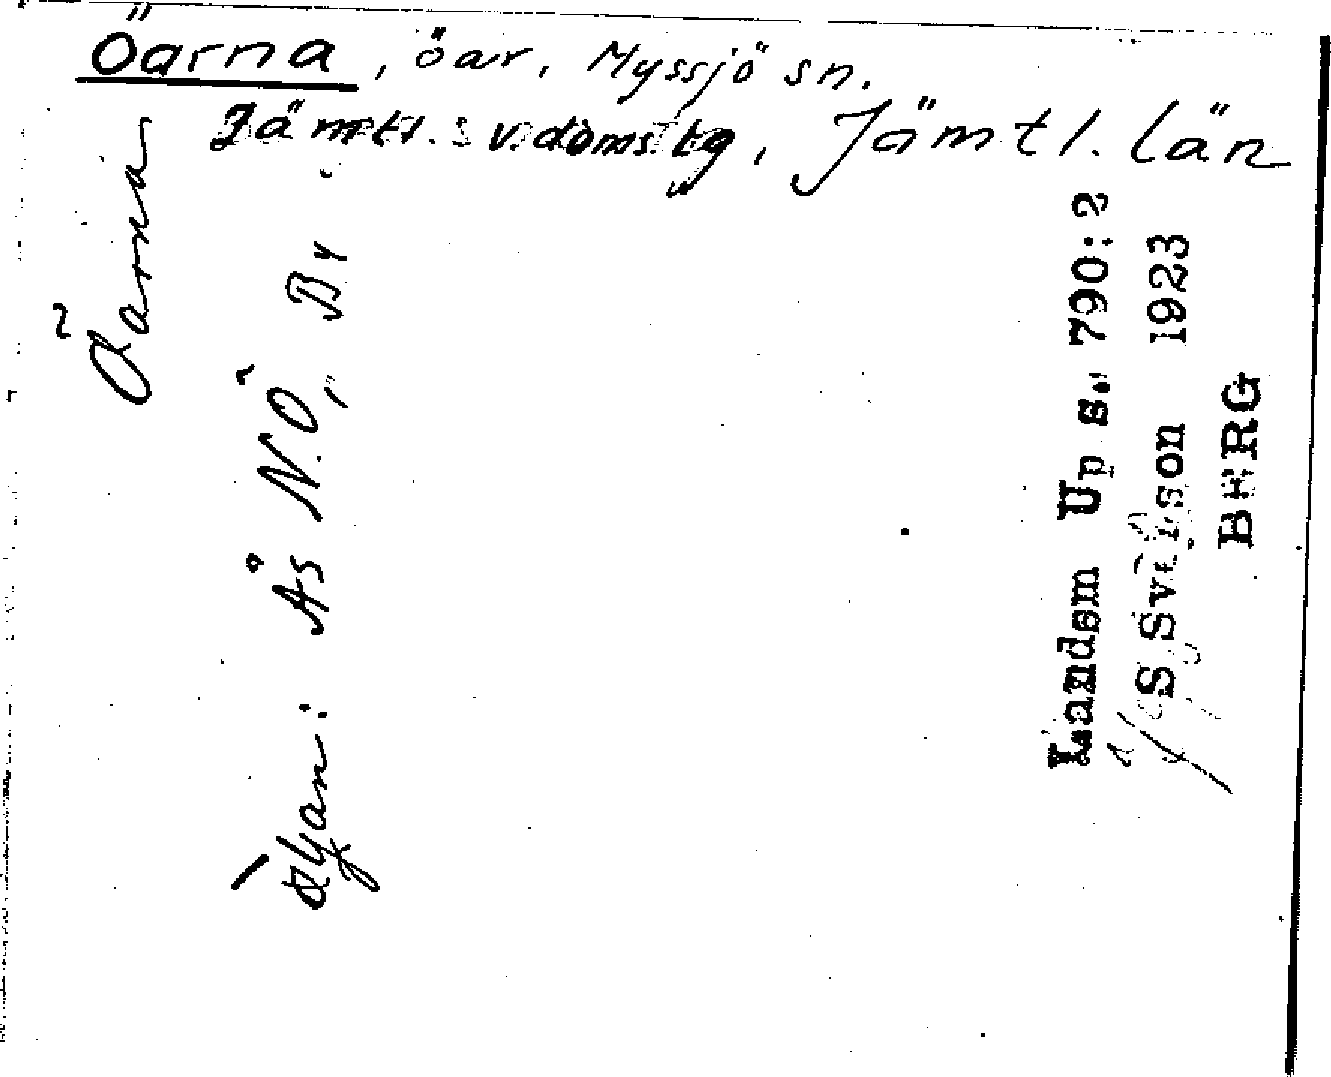 Öarna, öar, Myssjö sn.
Jämtl. s v. doms. lg, Jämtl. län
Öarna
Ås N.Ö, By
Landsm Ups. 790:2
S Svensson 1923
BERG